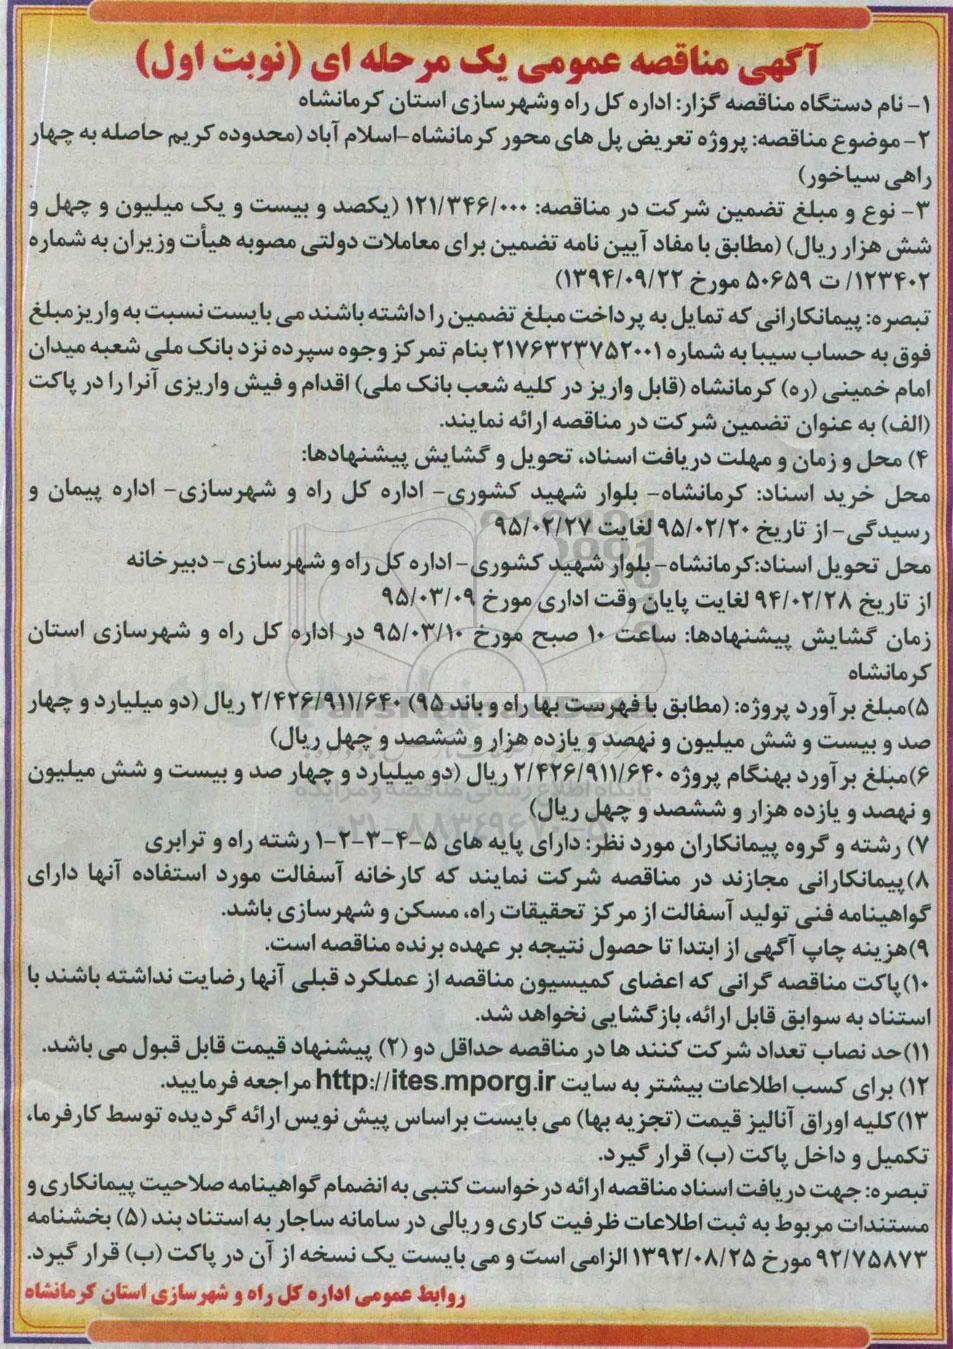 آگهی مناقصه عمومی یک مرحله ای (نوبت اول)
۱- نام دستگاه مناقصه گزار: اداره کل راه وشهرسازی استان کرمانشاه
۲- موضوع مناقصه: پروژه تعریض پل های محور کرمانشاه-اسلام آباد (محدوده کریم حاصله به چهار
راهی سیاخور)
۳- نوع و مبلغ تضمین شرکت در مناقصه: ۱۲۱/۳۴۶/۰۰۰ (یکصد و بیست و یک میلیون و چهل و
شش هزار ریال) (مطابق با مفاد آیین نامه تضمین برای معاملات دولتی مصوبه هیأت وزیران به شماره
۱۲۳۴۰۲/ ت ۵۰۶۵۹ مورخ ۱۳۹۴/۰۹/۲۲)
تبصره: پیمانکارانی که تمایل به پرداخت مبلغ تضمین را داشته باشند می بایست نسبت به واریز مبلغ
فوق به حساب سیبا به شماره ۲۱۷۶۳۲۳۷۵۲۰۰۱ بنام تمرکز وجوه سپرده نزد بانک ملی شعبه میدان
امام خمینی (ره) کرمانشاه (قابل واریز در کلیه شعب بانک ملی) اقدام و فیش واریزی آنرا را در پاکت
(الف) به عنوان تضمین شرکت در مناقصه ارائه نمایند.
۴) محل و زمان و مهلت دریافت اسناد، تحویل و گشایش پیشنهادها:
محل خرید اسناد: کرمانشاه- بلوار شهید کشوری- اداره کل راه و شهرسازی- اداره پیمان و
رسیدگی- از تاریخ ۹۵/۰۲/۲۰ لغایت ۹۵/۰۲/۲۷
محل تحویل اسناد:کرمانشاه- بلوار شهید کشوری- اداره کل راه و شهرسازی- دبیرخانه
از تاریخ ۹۴/۰۲/۲۸ لغایت پایان وقت اداری مورخ ۹۵/۰۳/۰۹
زمان گشایش پیشنهادها: ساعت ۱۰ صبح مورخ ۹۵/۰۳/۱۰ در اداره کل راه و شهرسازی استان
کرمانشاه
۵)مبلغ برآورد پروژه: (مطابق با فهرست بها راه و باند ۹۵) ۲/۴۲۶/۹۱۱/۶۴۰ ریال (دو میلیارد و چهار
صد و بیست و شش میلیون و نهصد و یازده هزار و ششصد و چهل ریال)
۶)مبلغ برآورد بهنگام پروژه ۲/۴۲۶/۹۱۱/۶۴۰ ریال (دو میلیارد و چهار صد و بیست و شش میلیون
و نهصد و یازده هزار و ششصد و چهل ریال)
۷) رشته و گروه پیمانکاران مورد نظر: دارای پایه های ۵-۴-۳-۲-۱ رشته راه و ترابری
۸)پیمانکارانی مجازند در مناقصه شرکت نمایند که کارخانه آسفالت مورد استفاده آنها دارای
گواهینامه فنی تولید آسفالت از مرکز تحقیقات راه، مسکن و شهرسازی باشد.
۹)هزینه چاپ آگهی از ابتدا تا حصول نتیجه بر عهده برنده مناقصه است.
۱۰)پاکت مناقصه گرانی که اعضای کمیسیون مناقصه از عملکرد قبلی آنها رضایت نداشته باشند با
استناد به سوابق قابل ارائه، بازگشایی نخواهد شد.
۱۱)حد نصاب تعداد شرکت کنند ها در مناقصه حداقل دو (۲) پیشنهاد قیمت قابل قبول می باشد.
۱۲) برای کسب اطلاعات بیشتر به سایت http://ites.mporg.ir مراجعه فرمایید.
۱۳)کلیه اوراق آنالیز قیمت (تجزیه بها) می بایست براساس پیش نویس ارائه گردیده توسط کارفرما،
تکمیل و داخل پاکت (ب) قرار گیرد.
تبصره: جهت دریافت اسناد مناقصه ارائه درخواست کتبی به انضمام گواهینامه صلاحیت پیمانکاری و
مستندات مربوط به ثبت اطلاعات ظرفیت کاری و ریالی در سامانه ساجار به استناد بند (۵) بخشنامه
۹۲/۷۵۸۷۳ مورخ ۱۳۹۲/۰۸/۲۵ الزامی است و می بایست یک نسخه از آن در پاکت (ب) قرار گیرد.
روابط عمومی اداره کل راه و شهرسازی استان کرمانشاه